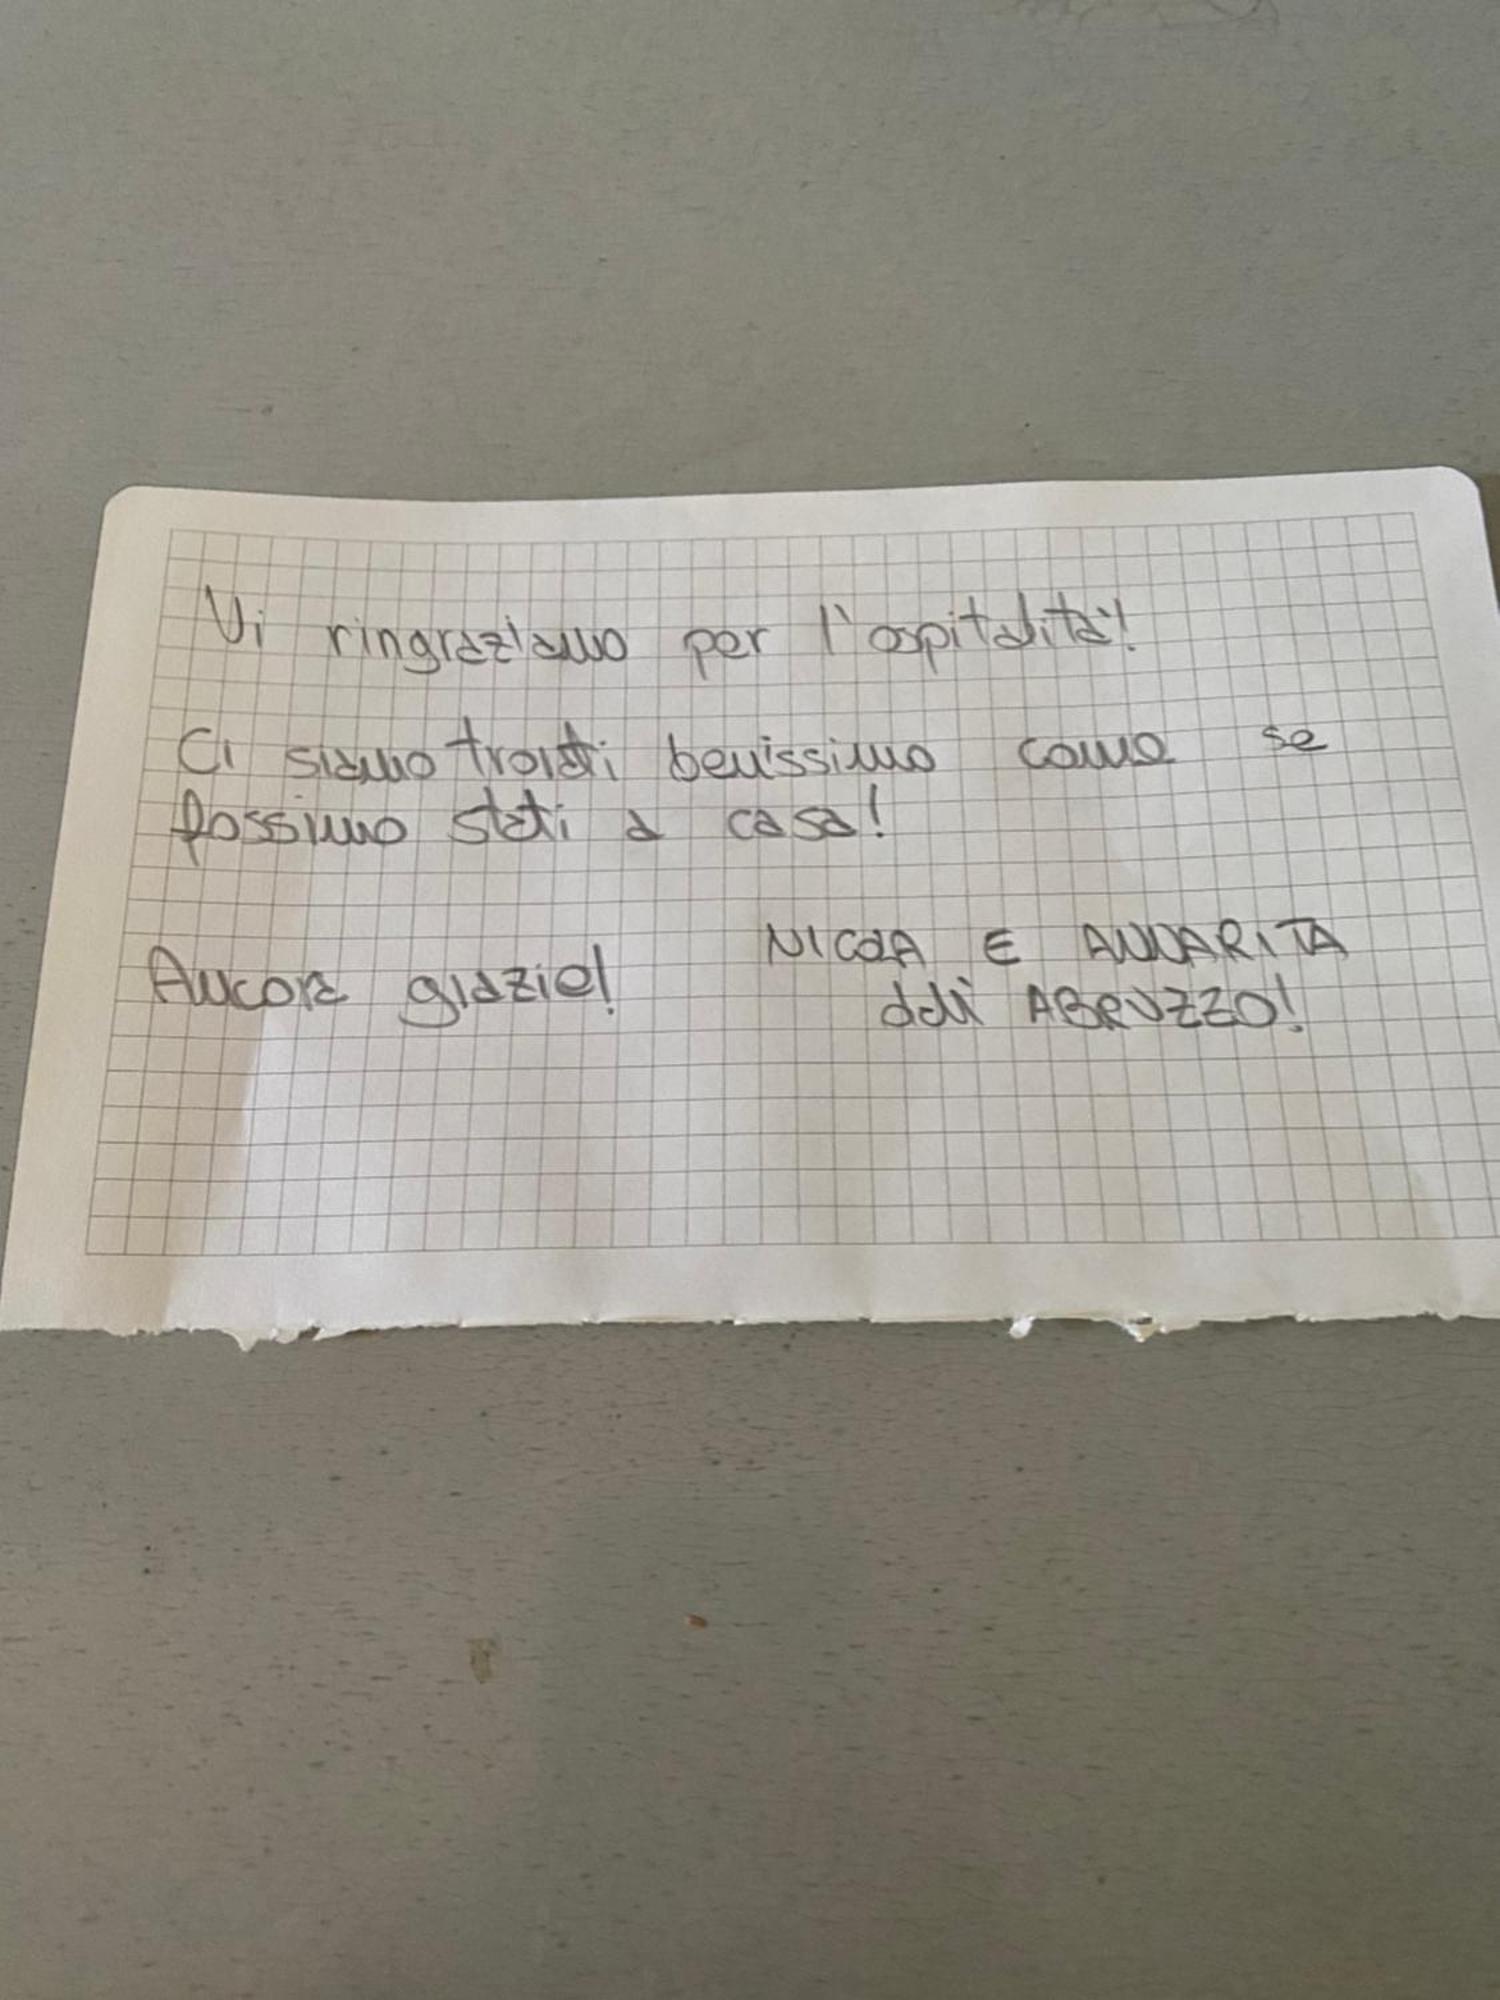 Vi ringraziamo per l'ospitalità!
Ci siamo trovati benissimo come se
fossimo stati a casa!
Ancora grazie!
NICOLA E ANNARITA
dall' ABRUZZO!